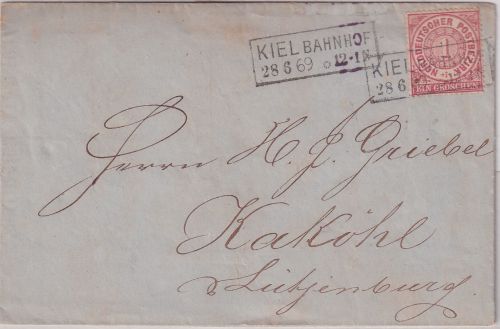 KIEL BAHNHOF
28 6 69 12-1N
KIEL
28 6
NORDDEUTSCHER POSTBEZIRK
1
EIN GROSCHEN
Herrn H. J. Griebel
Kaköhl
Lütjenburg.